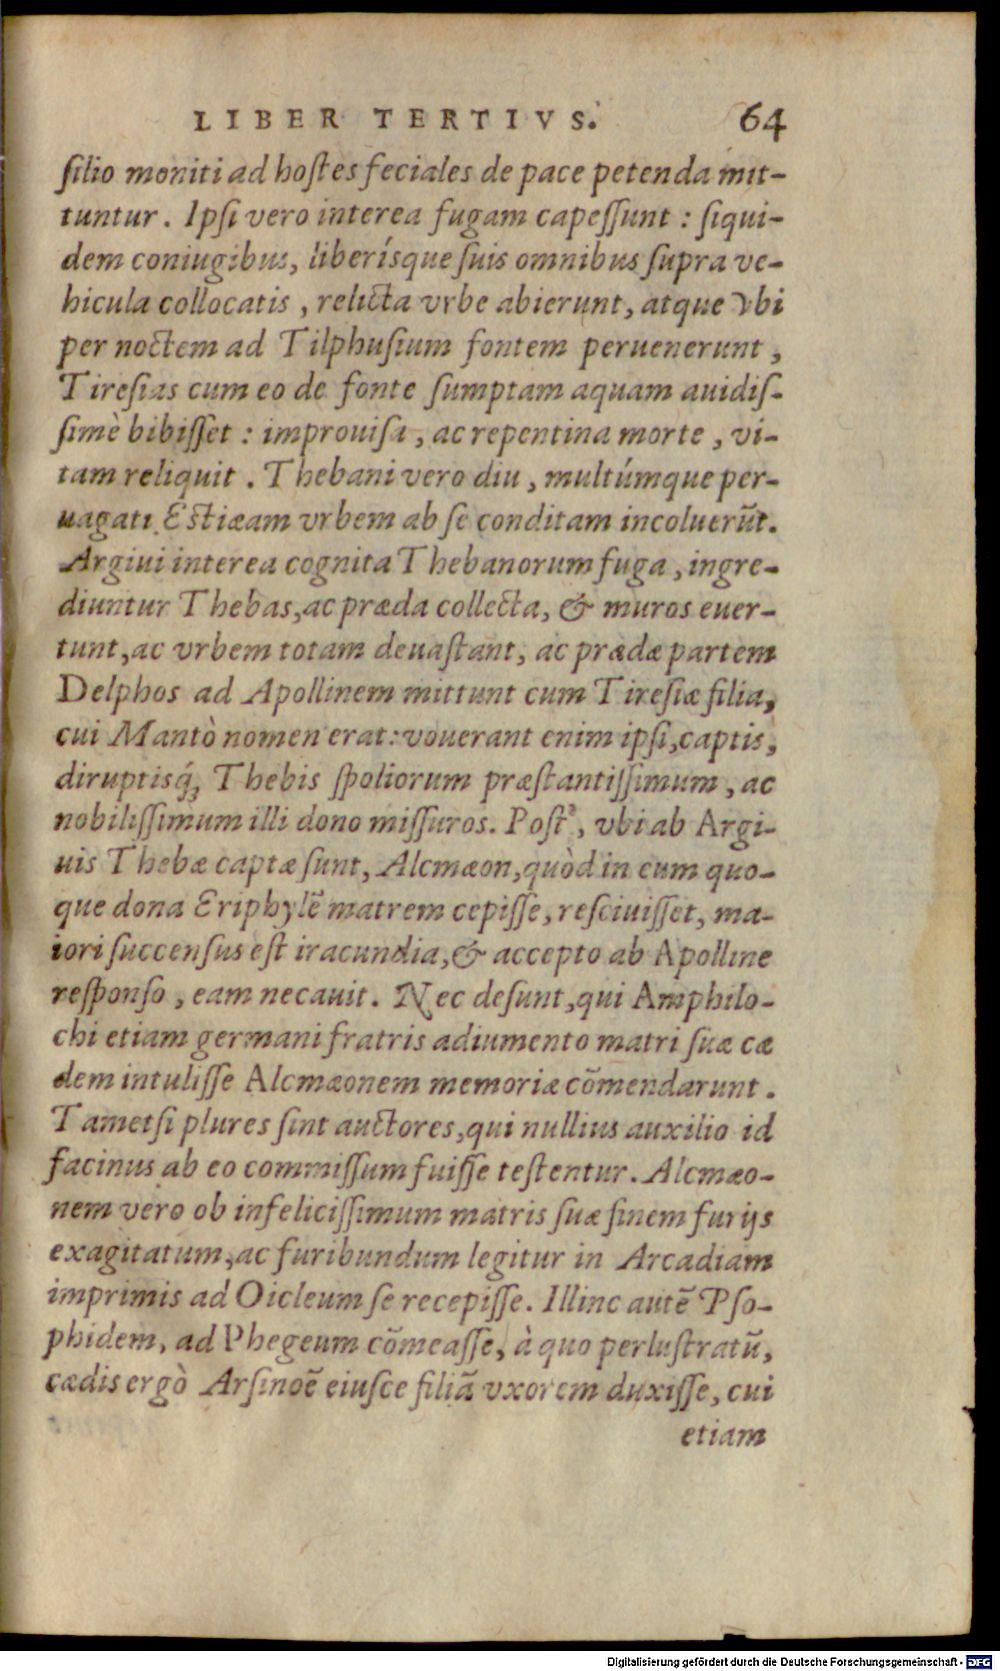 LIBER TERTIVS. 64
ſilio moniti ad hoſtes feciales de pace petenda mit-
tuntur. Ipſi vero interea fugam capeſſunt: ſiqui-
dem coniugibus, liberísque ſuis omnibus ſupra ve-
hicula collocatis, relicta vrbe abierunt, atque vbi
per noctem ad Tilphuſium fontem peruenerunt,
Tireſias cum eo de fonte ſumptam aquam auidiſ-
ſimè bibiſſet: improuiſa, ac repentina morte, vi-
tam reliquit. Thebani vero diu, multúmque per-
uagati Eſtiæam vrbem ab ſe conditam incoluerũt.
Argiui interea cognita Thebanorum fuga, ingre-
diuntur Thebas, ac præda collecta, & muros euer-
tunt, ac vrbem totam deuaſtant, ac prædæ partem
Delphos ad Apollinem mittunt cum Tireſiæ filia,
cui Mantò nomen erat: vouerant enim ipſi, captis,
diruptisq́ꝫ Thebis ſpoliorum præſtantiſſimum, ac
nobiliſſimum illi dono miſſuros. Poſtꝰ, vbi ab Argi-
uis Thebæ captæ ſunt, Alcmæon, quòd in eum quo-
que dona Eriphylẽ matrem cepiſſe, reſciuiſſet, ma-
iori ſuccenſus eſt iracundia, & accepto ab Apolline
reſponſo, eam necauit. Nec deſunt, qui Amphilo-
chi etiam germani fratris adiumento matri ſuæ cæ
dem intuliſſe Alcmæonem memoriæ cõmendarunt.
Tametſi plures ſint auctores, qui nullius auxilio id
facinus ab eo commiſſum fuiſſe teſtentur. Alcmæo-
nem vero ob infeliciſſimum matris ſuæ finem furijs
exagitatum, ac furibundum legitur in Arcadiam
imprimis ad Oicleum ſe recepiſſe. Illinc autẽ Pſo-
phidem, ad Phegeum cõmeaſſe, à quo perluſtratũ,
cædis ergò Arſinoẽ eiuſce filiã vxorem duxiſſe, cui
etiam
Digitalisierung gefördert durch die Deutsche Forschungsgemeinschaft - DFG